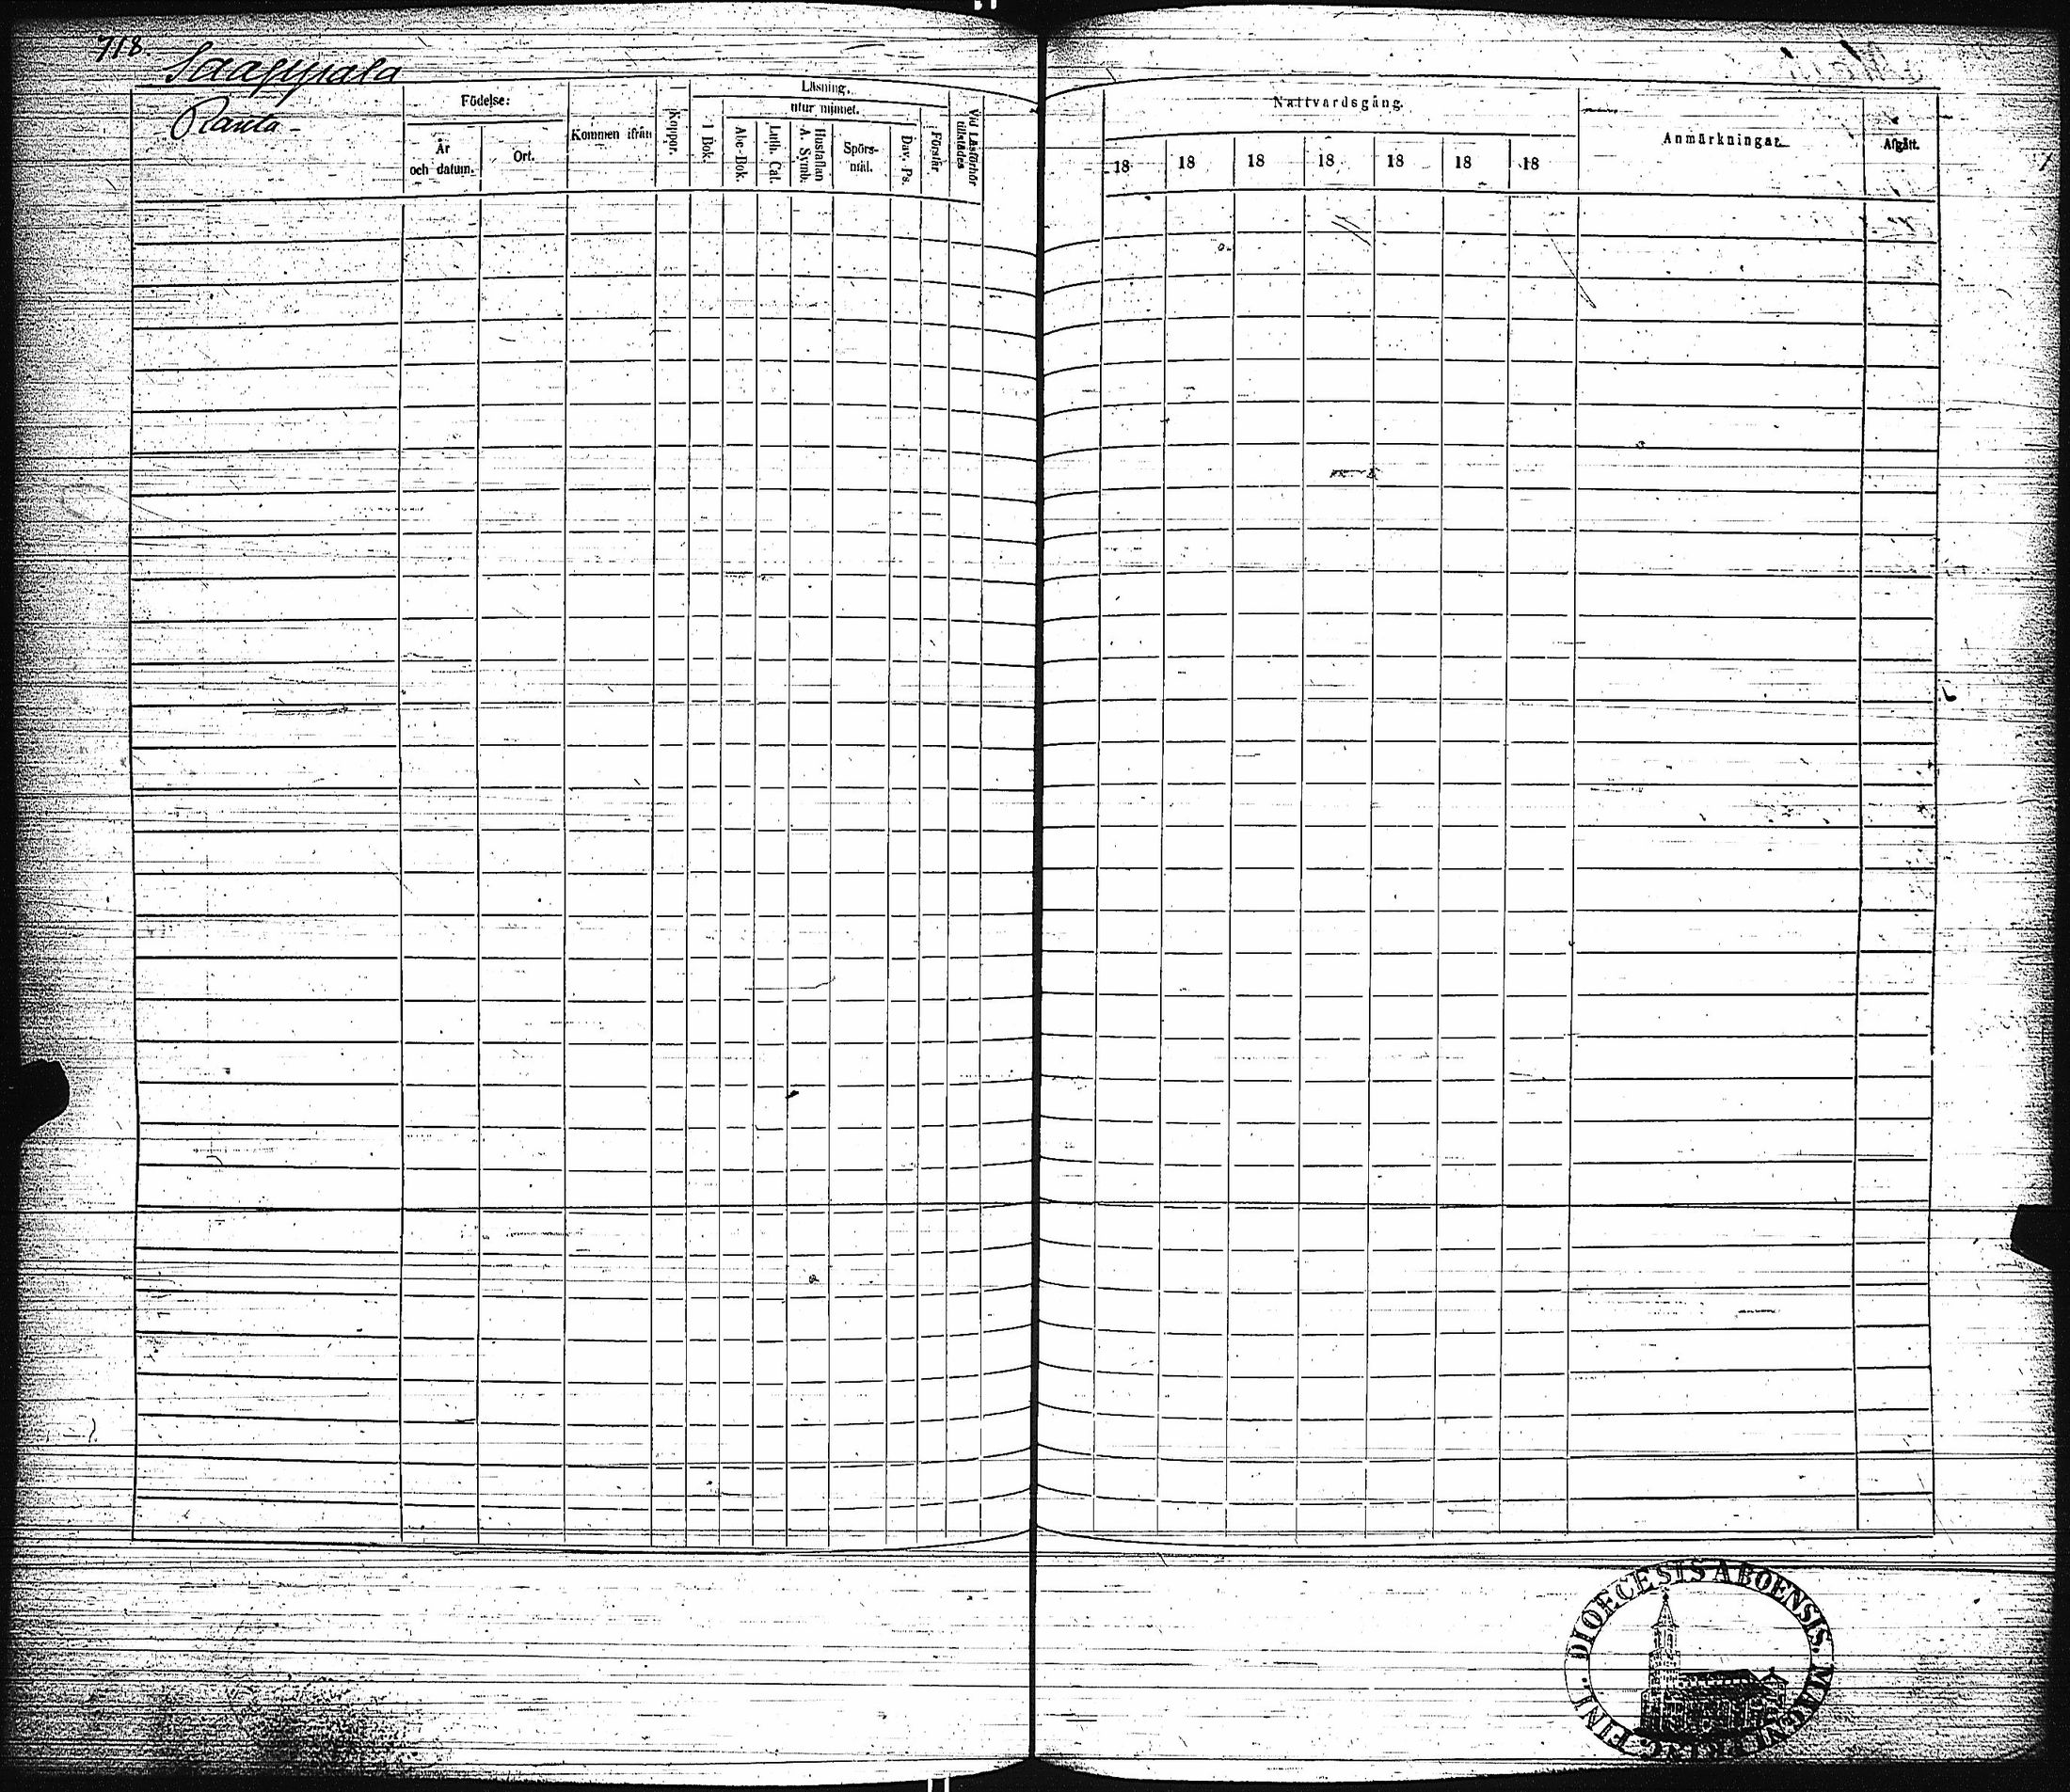 718
Saappala
Ranta
Födelse:
År
och datum.
Ort.
Kommen ifrån
Koppor.
Läsning.
utur minnet.
I Bok.
Abc-Bok.
Luth. Cat.
Hustaflan
A. Symb.
Spörs-
mål.
Dav. Ps.
Förstår
Vid Läsförhör
tillstädes
Nattvardsgång.
18 18 18 18 18 18 18
Anmärkningar.
Afgått.
DIOECESIS ABOENSIS.